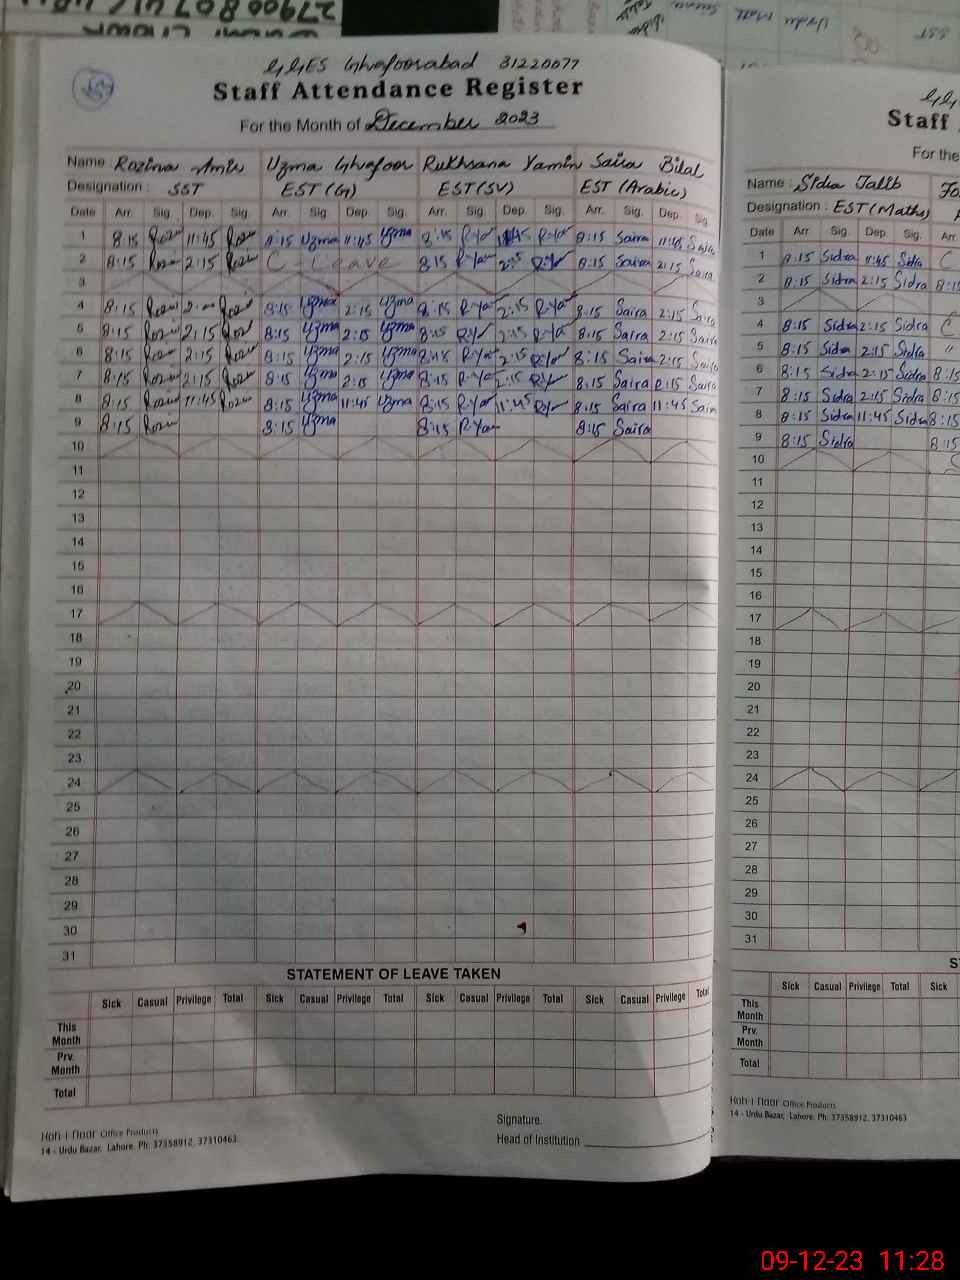 GGES Ghafoorabad 31220077
Staff Attendance Register
For the Month of December 2023
Name Rozina Amir Uzma Ghafoor Rukhsana Yamin Saira Bilal
Designation : SST EST(G) EST(SV) EST (Arabic)
Date Arr. Sig. Dep. Sig. Arr. Sig. Dep. Sig. Arr. Sig. Dep. Sig. Arr. Sig. Dep. Sig.
1 8:15 Rozi 11:45 Rozi 8:15 Uzma 11:45 Uzma 8:15 R-Ya 11:45 R-Ya 8:15 Saira 11:45 Saira
2 8:15 Rozi 2:15 Rozi C - Leave 8:15 R-Ya 2:15 R-Ya 8:15 Saira 2:15 Saira
3
4 8:15 Rozi Rozi 8:15 Uzma 2:15 Uzma 8:15 R-Ya 2:15 R-Ya 8:15 Saira 2:15 Saira
5 8:15 Rozi 2:15 Rozi 8:15 Uzma 2:15 Uzma 8:15 R-Y 2:15 R-Ya 8:15 Saira 2:15 Saira
6 8:15 Rozi 2:15 Rozi 8:15 Uzma 2:15 Uzma 8:15 R-Ya 2:15 R-Ya 8:15 Saira 2:15 Saira
7 8:15 Rozi 2:15 Rozi 8:15 Uzma 2:15 Uzma 8:15 R-Ya 2:15 R-Ya 8:15 Saira 2:15 Saira
8 8:15 Rozi 11:45 Rozi 8:15 Uzma 11:45 Uzma 8:15 R-Ya 11:45 R-Ya 8:15 Saira 11:45 Sair
9 8:15 Rozi 8:15 Uzma 8:15 R-Ya 8:15 Saira
10
11
12
13
14
15
16
17
18
19
20
21
22
23
24
25
26
27
28
29
30
31
STATEMENT OF LEAVE TAKEN
Sick Casual Privilege Total Sick Casual Privilege Total Sick Casual Privilege Total Sick Casual Privilege Total
This Month
Prv. Month
Total
Koh-i-Noor Office Products
14 - Urdu Bazar, Lahore. Ph. 37358912, 37310463
Signature.
Head of Institution
Staff
For the
Name : Sidra Talib
Designation : EST(Maths)
Date Arr. Sig. Dep. Sig. Arr.
1 8:15 Sidra 11:45 Sidra C
2 8:15 Sidra 2:15 Sidra 8:15
3
4 8:15 Sidra 2:15 Sidra C
5 8:15 Sidra 2:15 Sidra "
6 8:15 Sidra 2:15 Sidra 8:15
7 8:15 Sidra 2:15 Sidra 8:15
8 8:15 Sidra 11:45 Sidra 8:15
9 8:15 Sidra 8:15
10
11
12
13
14
15
16
17
18
19
20
21
22
23
24
25
26
27
28
29
30
31
Sick Casual Privilege Total Sick
This Month
Prv. Month
Total
Koh-i-Noor Office Products
14 - Urdu Bazar, Lahore. Ph. 37358912, 37310463
09-12-23 11:28